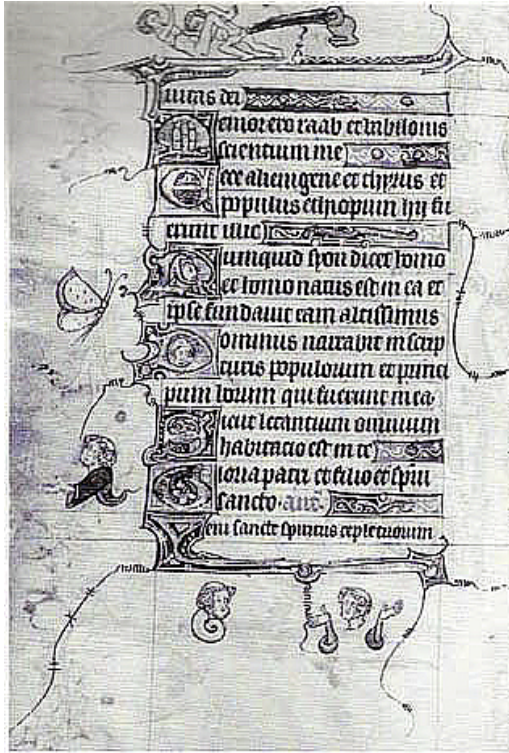 uitas dei
Memor ero raab et babilonis
scientium me
Ecce alienigene et thyrus et
populus ethiopum hij fu
erunt illic
Nunquid syon dicet homo
et homo natus est in ea et
ipse fundauit eam altissimus
Dominus narrabit in scrip
turis populorum et princi
pum horum qui fuerunt in ea
Sicut letantium omnium
habitacio est in te
Gloria patri et filio et spiri
sancto. ant.
Veni sancte spiritus reple tuorum